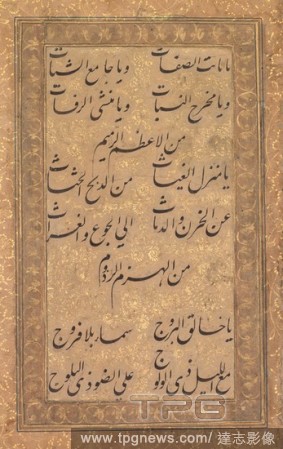 یا بابت الصفات ویا جامع الشتات
ویا مخرج النبات ویا منشی الرفات
من الاعظم الرمیم
یا منزل الغیاث من الدلح الحثاث
عن الحزن والدماث الی الجوع والغراث
من الهزم الرزوم
یا خالق البروج سماء بلا فروج
مع اللیل ذی الولوج علی الضوء ذی البلوج
TPG
www.tpgnews.com/達志影像